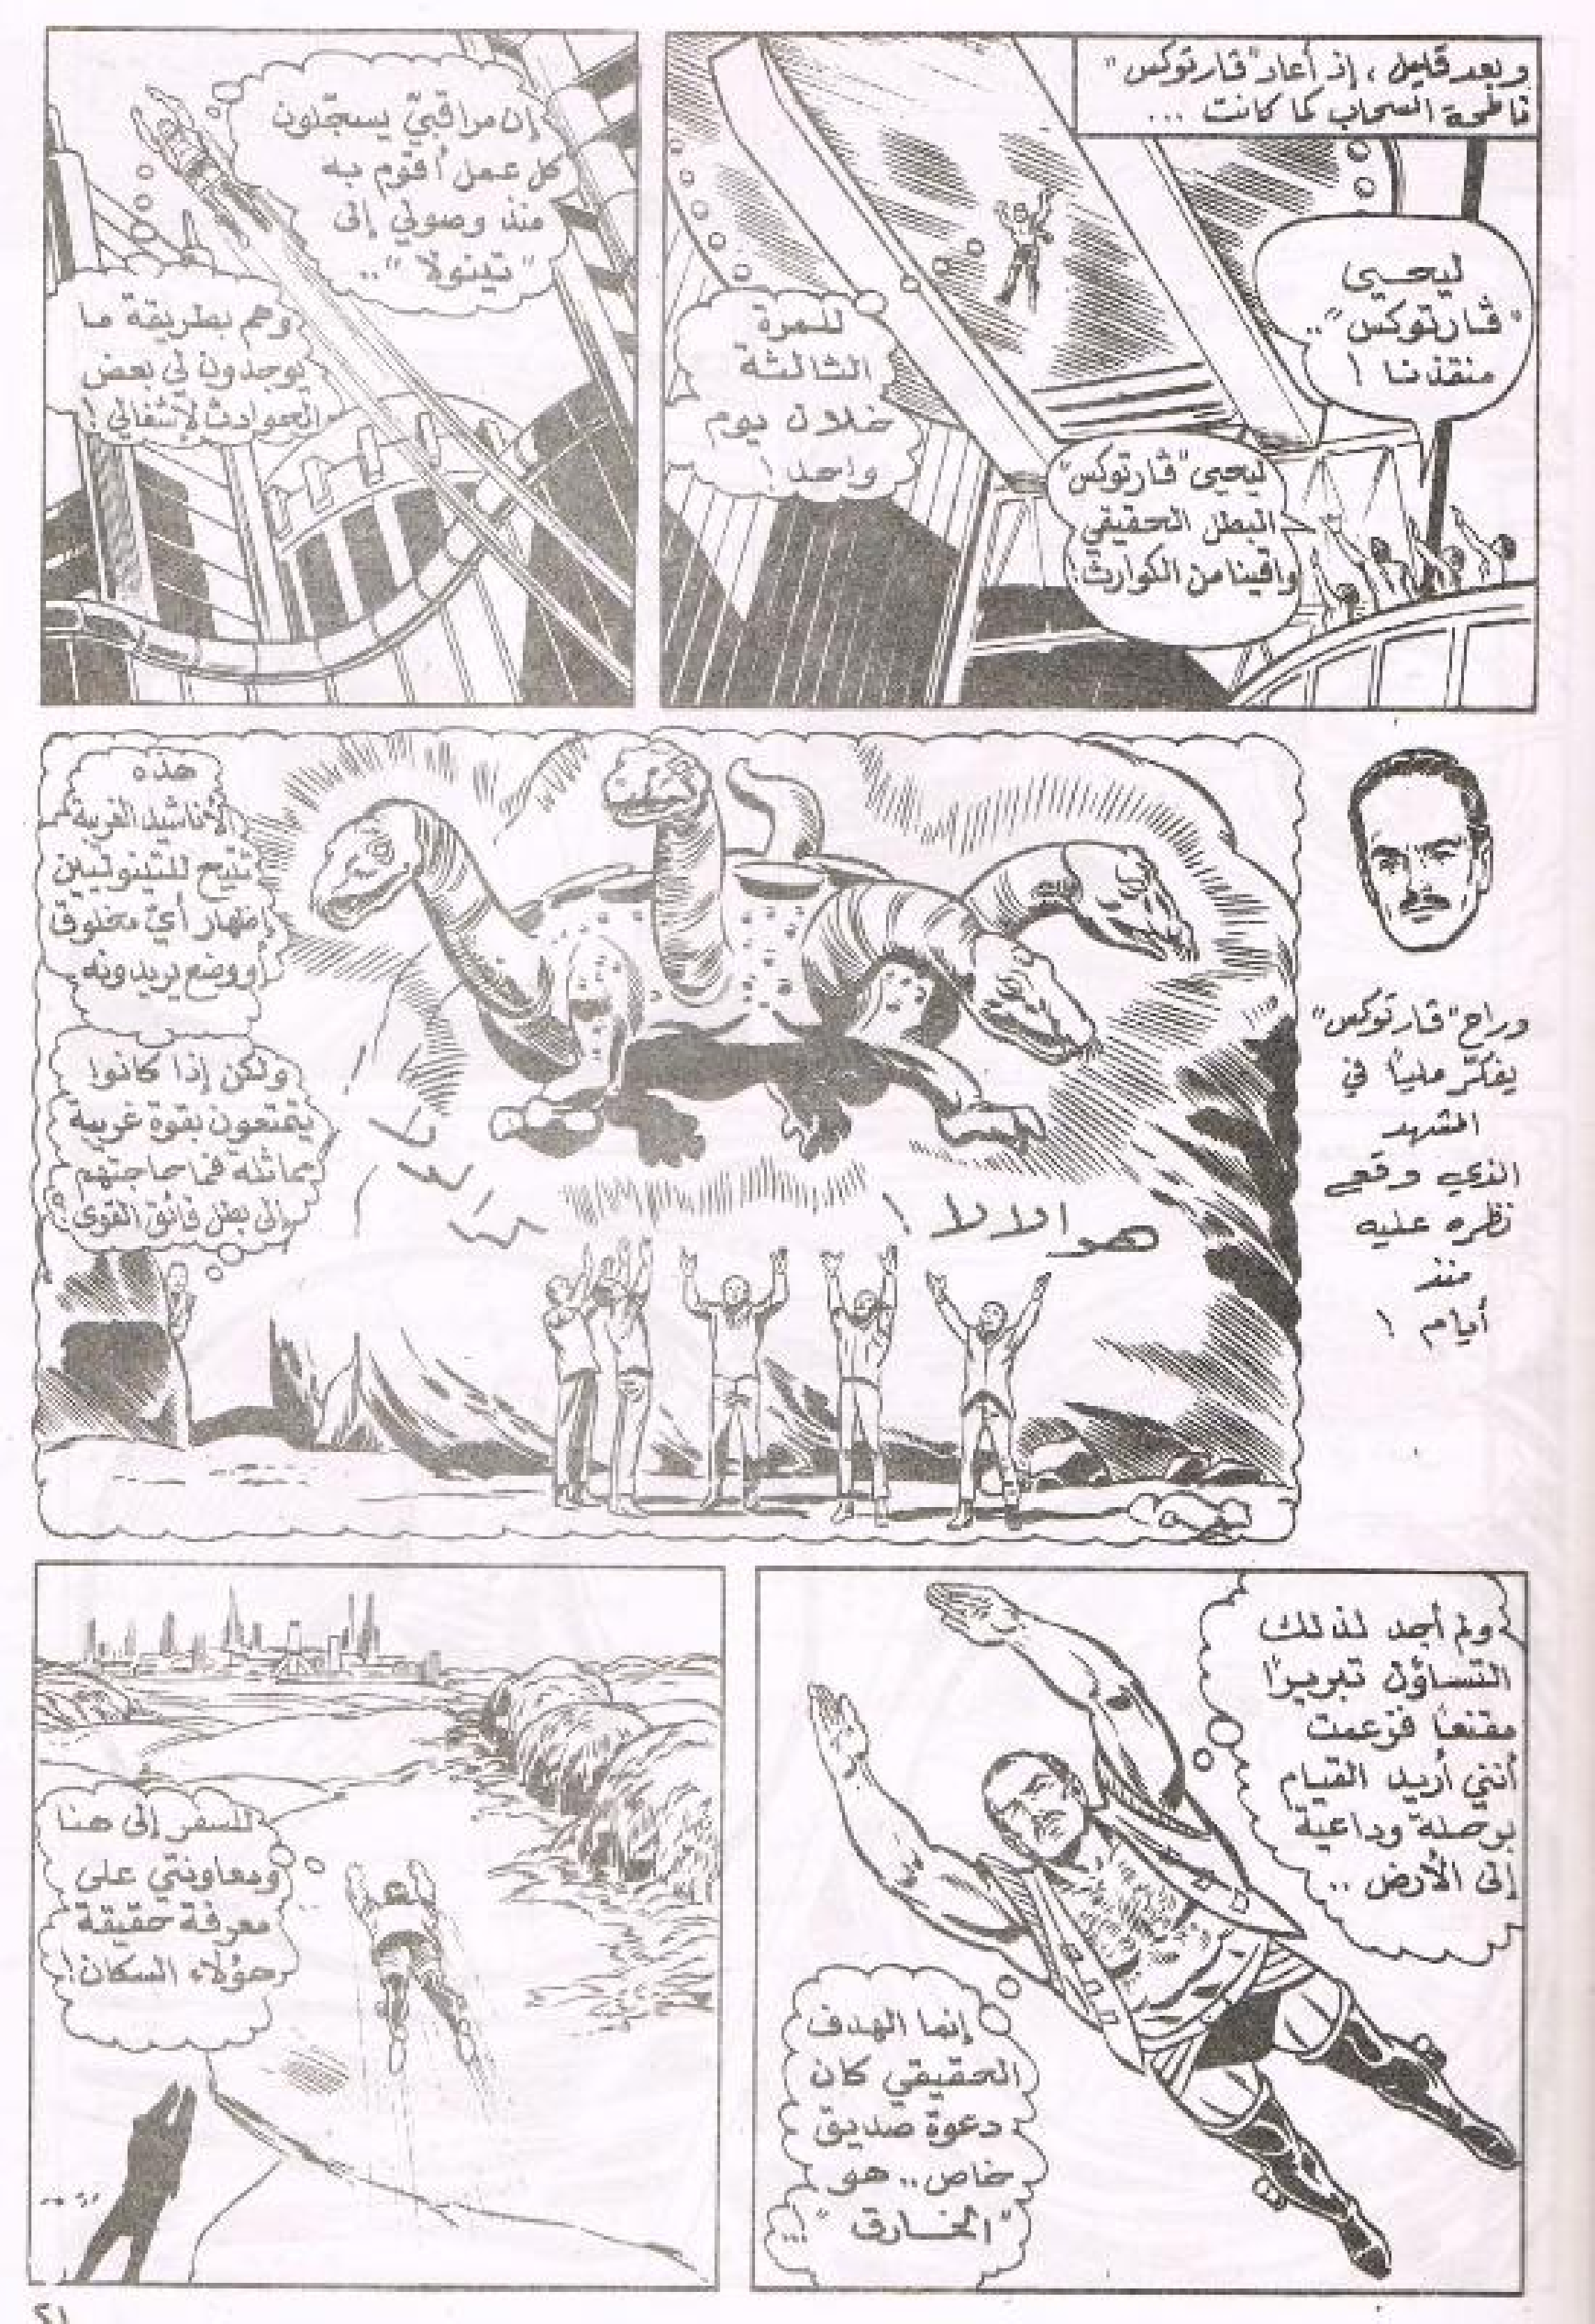 وبعد قليل ، إذ أعاد "ڤارتوكس"
ناطحة السحاب كما كانت ...
ليحيى
"ڤارتوكس"..
منقذنا !
ليحيى "ڤارتوكس"
البطل الحقيقي
واقينا من الكوارث!
للمرة
الثالثة
خلال يوم
واحد !
إن مراقبيّ يسجّلون
كل عمل أقوم به
منذ وصولي إلى
"تينولا" ..
وهم بطريقة ما
يوجدون لي بعض
الحوادث لإشغالي !
وراح "ڤارتوكس"
يفكّر ملياً في
المشهد
الذي وقع
نظره عليه
منذ
أيام !
هذه
الأناشيد الغريبة
تتيح للتينوليين
إظهار أيّ مخلوق
أو وضع يريدونه
ولكن إذا كانوا
يتمتعون بقوة غريبة
مماثلة فما حاجتهم
إلى بطل فائق القوى؟!
هوالالا !
ولم أجد لذلك
التساؤل تبريرًا
مقنعاً فزعمت
أنني أريد القيام
برحلة وداعية
إلى الأرض ..
إنما الهدف
الحقيقي كان
دعوة صديق
خاص .. هو
"الخارق" ...
للسفر إلى هنا
ومعاونتي على
معرفة حقيقة
هؤلاء السكان!
٢١